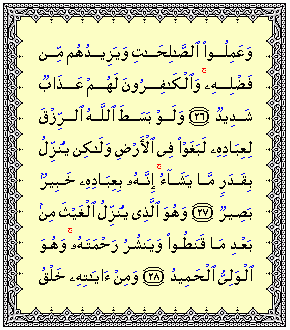 وَعَمِلُوا۟ ٱلصَّـٰلِحَـٰتِ وَيَزِيدُهُم مِّن
فَضْلِهِۦ ۚ وَٱلْكَـٰفِرُونَ لَهُمْ عَذَابٌ
شَدِيدٌ ﴿٢٦﴾ وَلَوْ بَسَطَ ٱللَّهُ ٱلرِّزْقَ
لِعِبَادِهِۦ لَبَغَوْا۟ فِى ٱلْأَرْضِ وَلَـٰكِن يُنَزِّلُ
بِقَدَرٍ مَّا يَشَآءُ ۚ إِنَّهُۥ بِعِبَادِهِۦ خَبِيرٌۢ
بَصِيرٌ ﴿٢٧﴾ وَهُوَ ٱلَّذِى يُنَزِّلُ ٱلْغَيْثَ مِنۢ
بَعْدِ مَا قَنَطُوا۟ وَيَنشُرُ رَحْمَتَهُۥ ۚ وَهُوَ
ٱلْوَلِىُّ ٱلْحَمِيدُ ﴿٢٨﴾ وَمِنْ ءَايَـٰتِهِۦ خَلْقُ